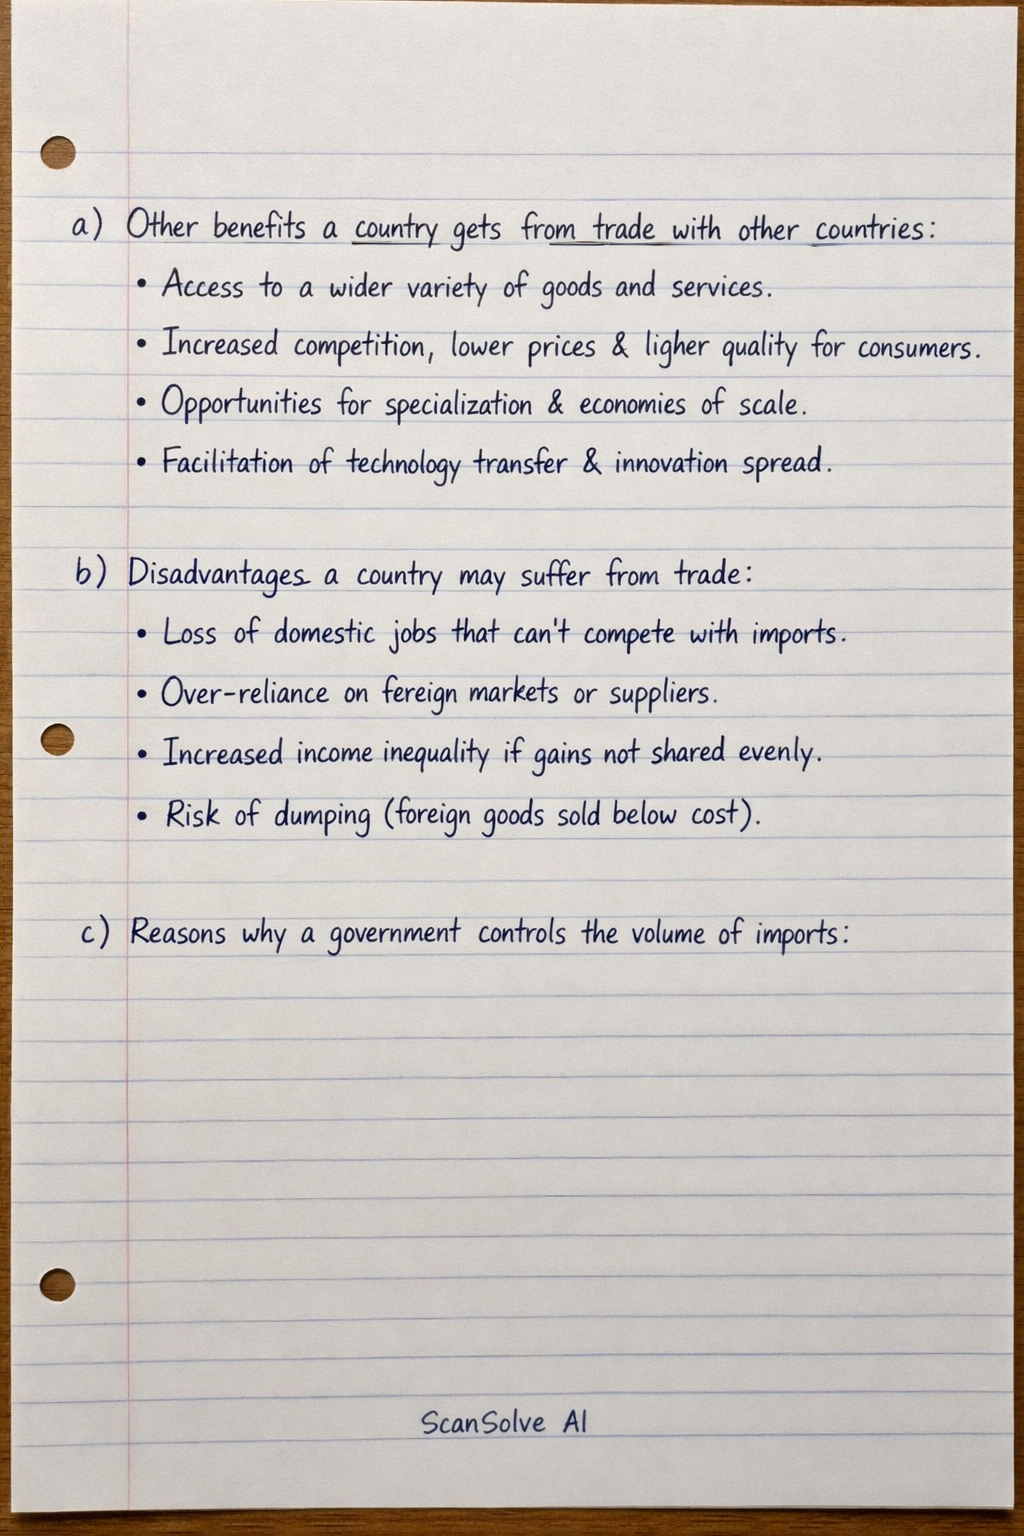 a) Other benefits a country gets from trade with other countries:
• Access to a wider variety of goods and services.
• Increased competition, lower prices & ligher quality for consumers.
• Opportunities for specialization & economies of scale.
• Facilitation of technology transfer & innovation spread.
b) Disadvantages a country may suffer from trade:
• Loss of domestic jobs that can't compete with imports.
• Over-reliance on fereign markets or suppliers.
• Increased income inequality if gains not shared evenly.
• Risk of dumping (foreign goods sold below cost).
c) Reasons why a government controls the volume of imports:
ScanSolve AI